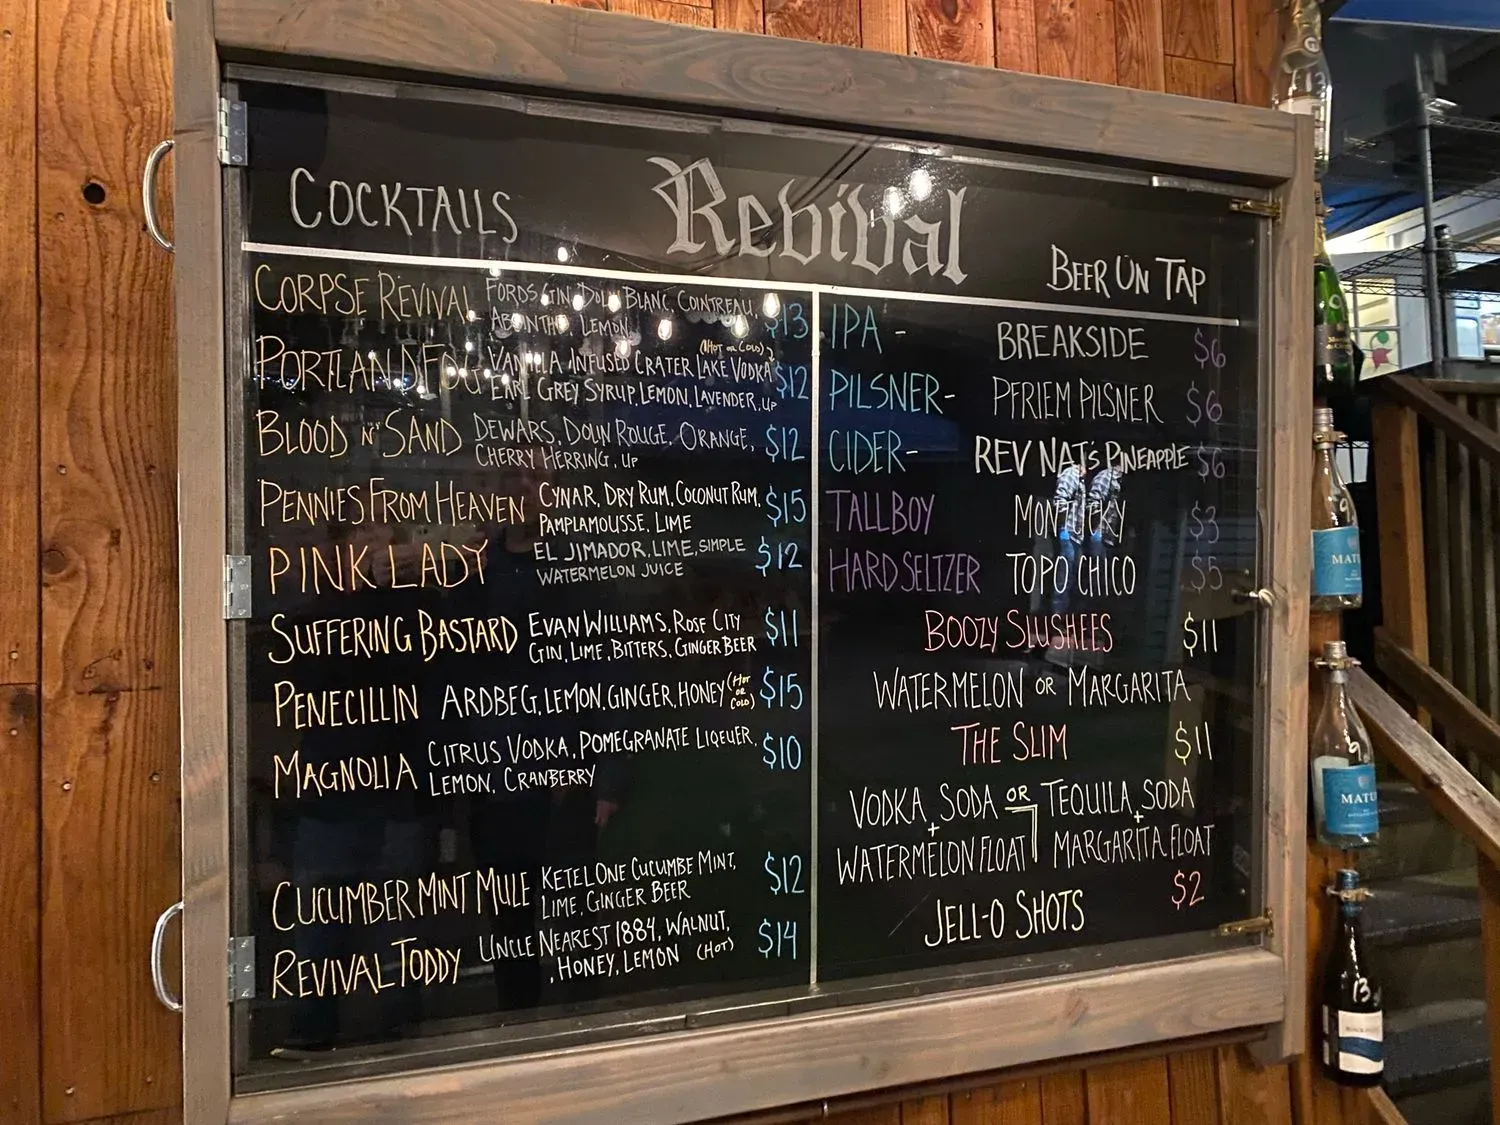 Cocktails
Revival
Beer On Tap
Corpse Revival Fords Gin, Dolin Blanc, Cointreau, $13
Absinthe, Lemon
(Hot or Cold)
Portland Fog Vanilla Infused Crater Lake Vodka $12
Earl Grey Syrup, Lemon, Lavender, up
Blood n' Sand Dewars, Dolin Rouge, Orange, $12
Cherry Herring, up
Pennies From Heaven Cynar, Dry Rum, Coconut Rum, $15
Pamplamousse, Lime
Pink Lady El Jimador, Lime, Simple $12
Watermelon Juice
Suffering Bastard Evan Williams, Rose City $11
Gin, Lime, Bitters, Ginger Beer
Penecillin Ardbeg, Lemon, Ginger, Honey (Hot or Cold) $15
Magnolia Citrus Vodka, Pomegranate Liqeuer, $10
Lemon, Cranberry
Cucumber Mint Mule Ketel One Cucumbe Mint, $12
Lime, Ginger Beer
Revival Toddy Uncle Nearest 1884, Walnut, $14
, Honey, Lemon (Hot)
IPA - Breakside $6
Pilsner - Pfriem Pilsner $6
Cider - Rev Nat's Pineapple $6
Tallboy Montucky $3
Hard Seltzer Topo Chico $5
Boozy Slushees $11
Watermelon or Margarita
The Slim $11
Vodka, Soda or Tequila, Soda
+ +
Watermelon Float Margarita Float
Jell-O Shots $2
13
9
MATU
9
MATU
13